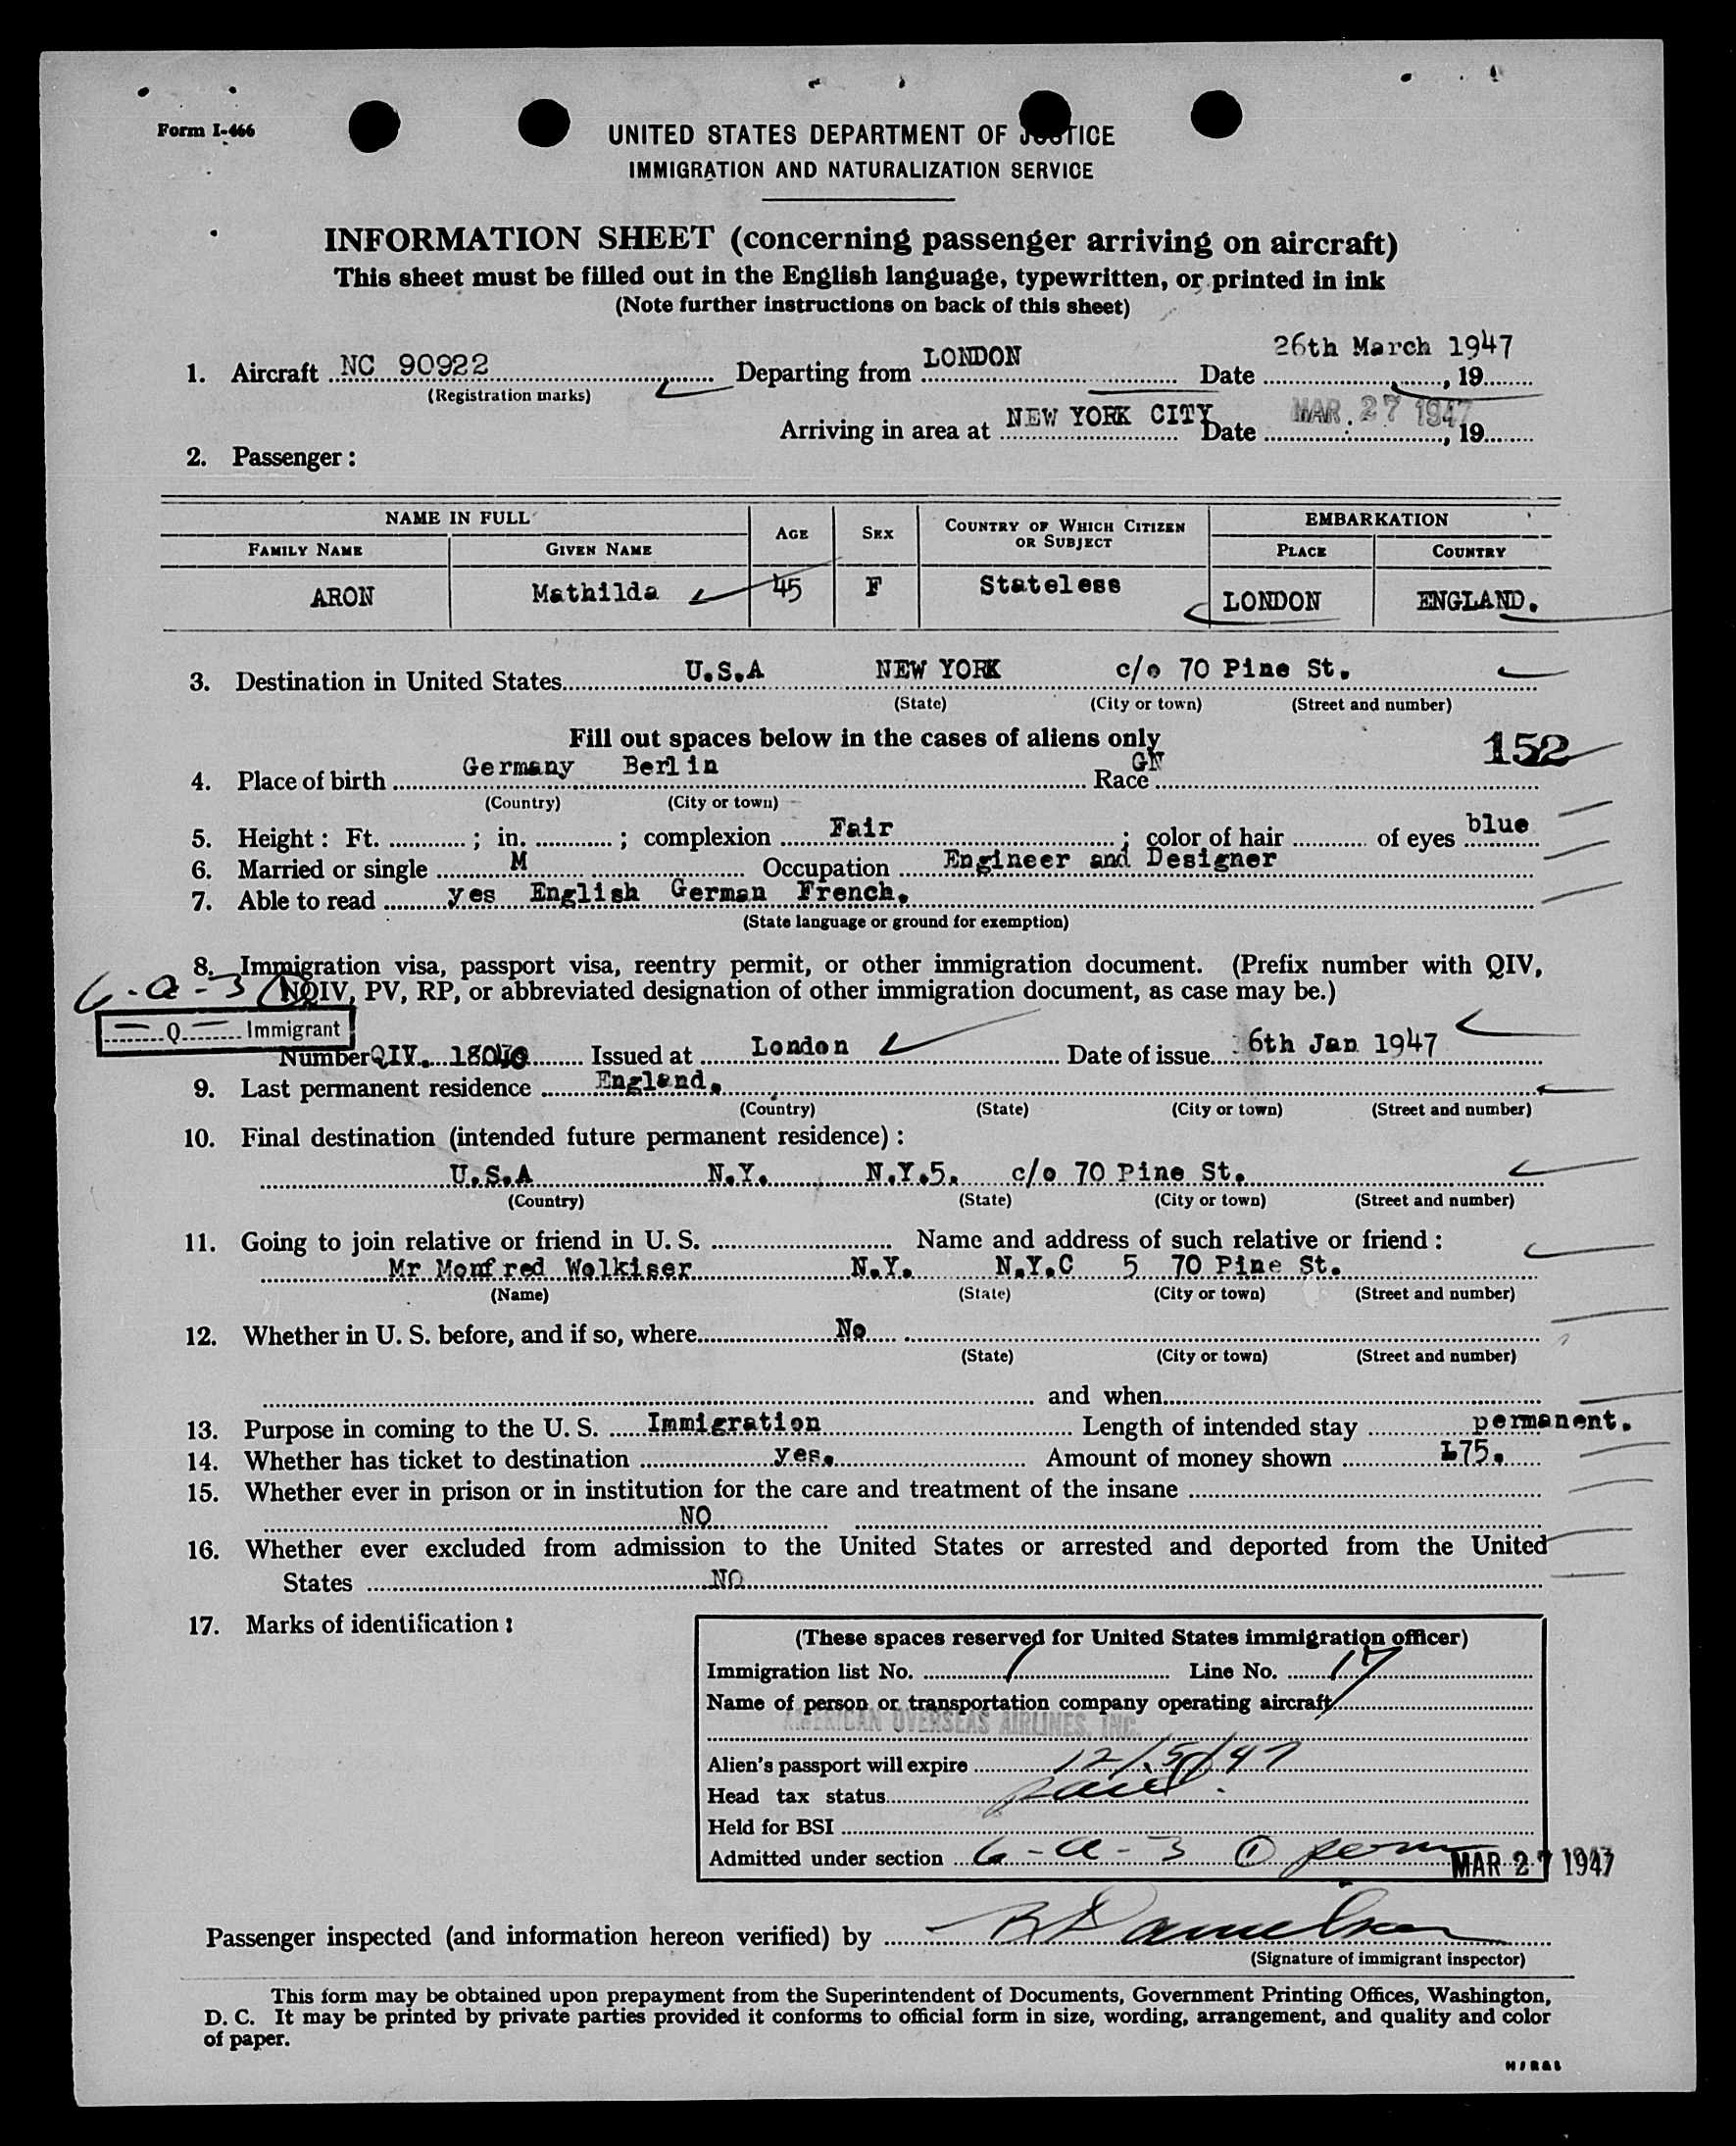 Form I-466
UNITED STATES DEPARTMENT OF JUSTICE
IMMIGRATION AND NATURALIZATION SERVICE
INFORMATION SHEET (concerning passenger arriving on aircraft)
This sheet must be filled out in the English language, typewritten, or printed in ink
(Note further instructions on back of this sheet)
26th March 1947
1. Aircraft NC 90922 Departing from LONDON Date , 19
(Registration marks)
Arriving in area at NEW YORK CITY Date MAR. 27 1947, 19
2. Passenger:
NAME IN FULL AGE SEX COUNTRY OF WHICH CITIZEN OR SUBJECT EMBARKATION
FAMILY NAME GIVEN NAME PLACE COUNTRY
ARON Mathilda 45 F Stateless LONDON ENGLAND.
3. Destination in United States U.S.A NEW YORK c/o 70 Pine St.
(State) (City or town) (Street and number)
Fill out spaces below in the cases of aliens only 152
4. Place of birth Germany Berlin Race GN
(Country) (City or town)
5. Height: Ft. ; in. ; complexion Fair ; color of hair of eyes blue
6. Married or single M Occupation Engineer and Designer
7. Able to read yes English German French.
(State language or ground for exemption)
8. Immigration visa, passport visa, reentry permit, or other immigration document. (Prefix number with QIV,
6-a-3 (1) NQIV, PV, RP, or abbreviated designation of other immigration document, as case may be.)
Q Immigrant
Number QIV. 18040 Issued at London Date of issue 6th Jan 1947
9. Last permanent residence England.
(Country) (State) (City or town) (Street and number)
10. Final destination (intended future permanent residence):
U.S.A N.Y. N.Y.5. c/o 70 Pine St.
(Country) (State) (City or town) (Street and number)
11. Going to join relative or friend in U. S. Name and address of such relative or friend:
Mr Monfred Wolkiser N.Y. N.Y.C 5 70 Pine St.
(Name) (State) (City or town) (Street and number)
12. Whether in U. S. before, and if so, where No
(State) (City or town) (Street and number)
and when
13. Purpose in coming to the U. S. Immigration Length of intended stay permanent.
14. Whether has ticket to destination yes. Amount of money shown £75.
15. Whether ever in prison or in institution for the care and treatment of the insane
NO
16. Whether ever excluded from admission to the United States or arrested and deported from the United
States NO
17. Marks of identification:
(These spaces reserved for United States immigration officer)
Immigration list No. 1 Line No. 17
Name of person or transportation company operating aircraft
AMERICAN OVERSEAS AIRLINES, INC.
Alien's passport will expire 12/5/47
Head tax status paid.
Held for BSI
Admitted under section 6-a-3 (1) perm MAR 27 1947
Passenger inspected (and information hereon verified) by
(Signature of immigrant inspector)
This form may be obtained upon prepayment from the Superintendent of Documents, Government Printing Offices, Washington,
D. C. It may be printed by private parties provided it conforms to official form in size, wording, arrangement, and quality and color
of paper.